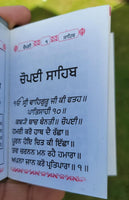 ਚੌਪਈ ੧ ਸਾਹਿਬ
ਚੌਪਈ ਸਾਹਿਬ
ੴ ਸ੍ਰੀ ਵਾਹਿਗੁਰੂ ਜੀ ਕੀ ਫਤਹ॥
ਪਾਤਿਸਾਹੀ ੧੦॥
ਕਬਯੋ ਬਾਚ ਬੇਨਤੀ॥ ਚੌਪਈ॥
ਹਮਰੀ ਕਰੋ ਹਾਥ ਦੈ ਰੱਛਾ॥
ਪੂਰਨ ਹੋਇ ਚਿਤ ਕੀ ਇੱਛਾ॥
ਤਵ ਚਰਨਨ ਮਨ ਰਹੈ ਹਮਾਰਾ॥
ਅਪਨਾ ਜਾਨ ਕਰੋ ਪ੍ਰਤਿਪਾਰਾ॥੧॥